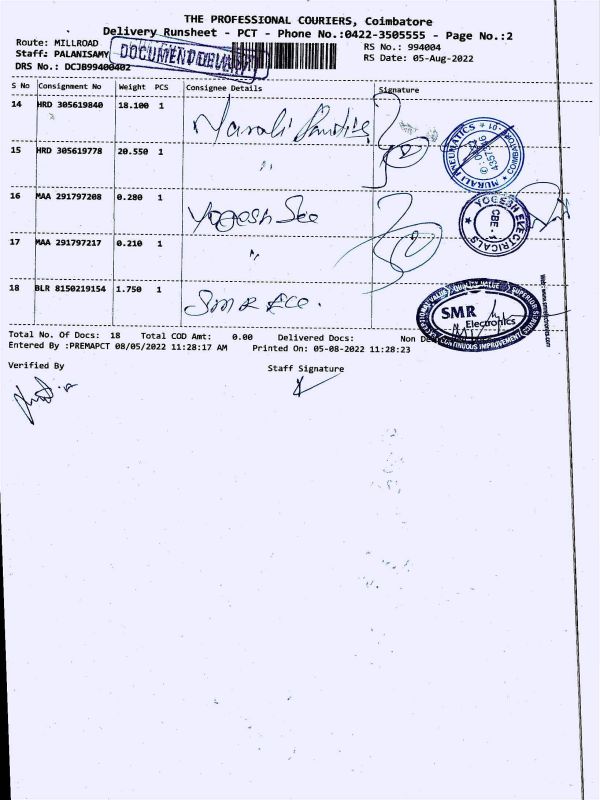 THE PROFESSIONAL COURIERS, Coimbatore
Delivery Runsheet - PCT - Phone No.:0422-3505555 - Page No.:2
Route: MILLROAD
RS No.: 994004
Staff: PALANISAMY
RS Date: 05-Aug-2022
DRS No.: DCJB99400402
S No Consignment No Weight PCS Consignee Details Signature
14 HRD 305619840 18.100 1
MURALI PNEUMATICS
15 HRD 305619778 20.550 1 "
16 MAA 291797208 0.280 1 Yogesh
YOGESH ELECTRICALS
CBE
17 MAA 291797217 0.210 1 "
18 BLR 8150219154 1.750 1 SMR
QUALITY VALUE SUPERIOR SERVICE
SMR
Electronics
CONTINUOUS IMPROVEMENT
Total No. Of Docs: 18 Total COD Amt: 0.00 Delivered Docs: Non
Entered By :PREMAPCT 08/05/2022 11:28:17 AM Printed On: 05-08-2022 11:28:23
Verified By Staff Signature